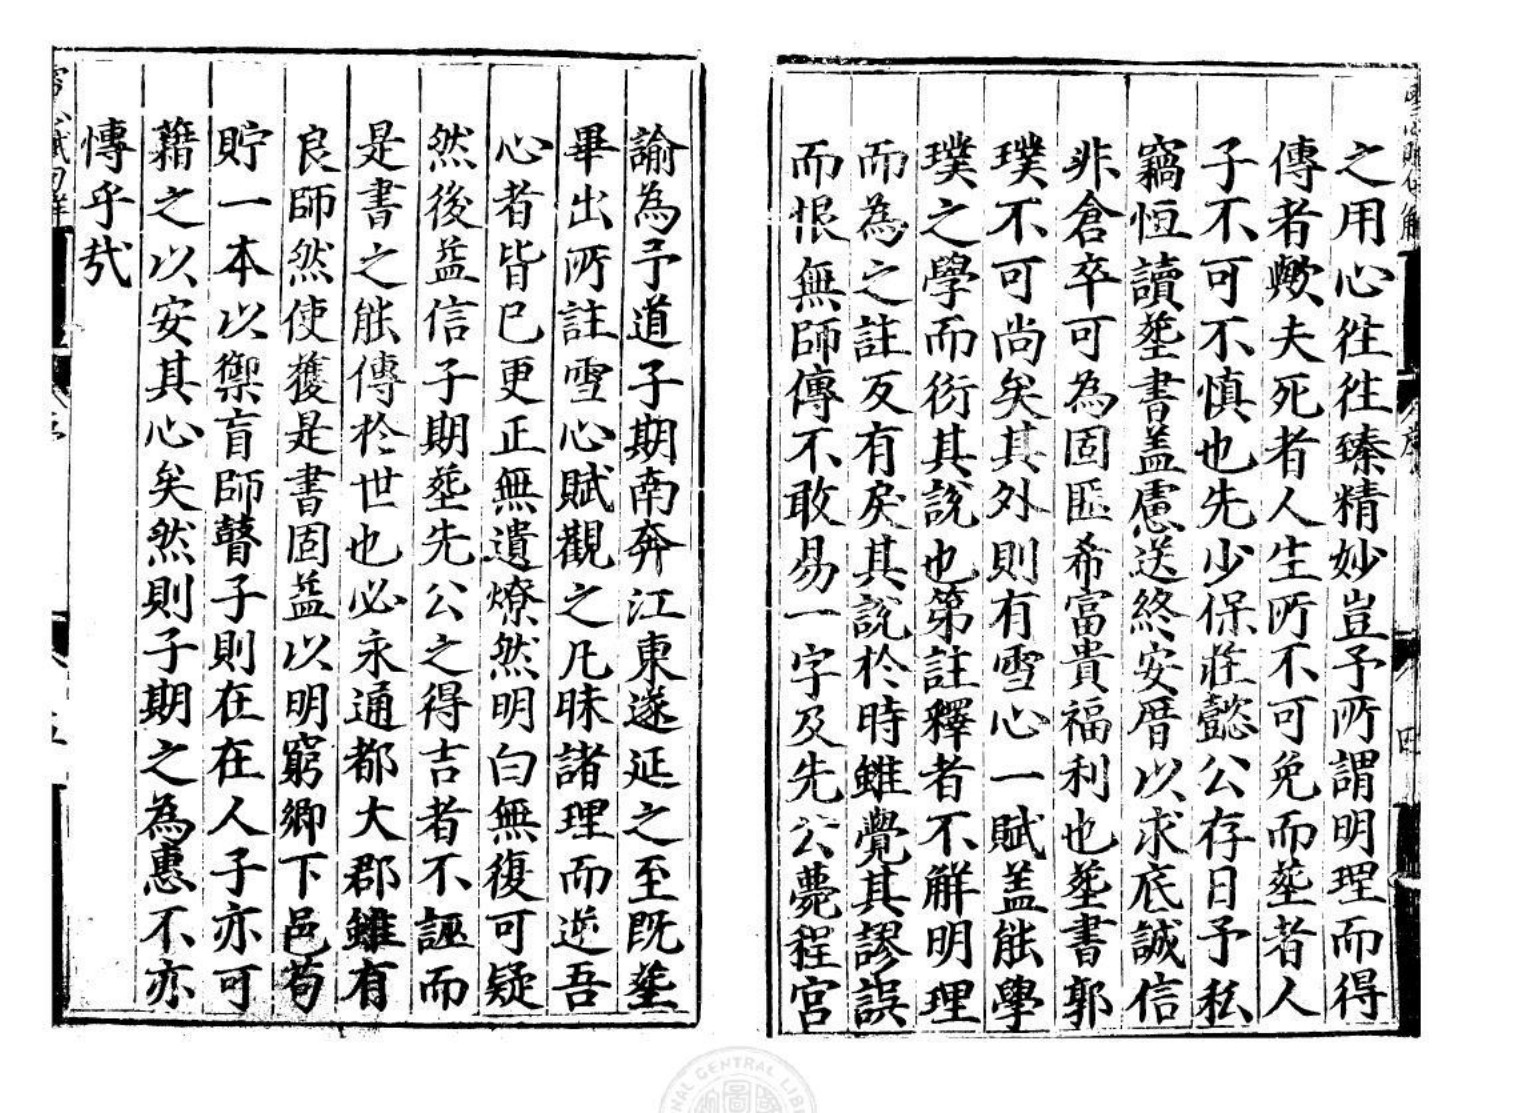 之用心徃徃臻精妙豈予所謂明理而得
傳者歟夫死者人生所不可免而塟者人
子不可不慎也先少保莊懿公存日予私
竊恒讀塟書盖慮送終安厝以求底誠信
非倉卒可為固匪希富貴福利也塟書郭
璞不可尚矣其外則有雪心一賦盖能學
璞之學而衍其說也第註釋者不解明理
而為之註反有戾其說於時雖覺其謬誤
而恨無師傳不敢易一字及先公薨程宫
諭為予道子期南奔江東遂延之至既塟
畢出所註雪心賦觀之凡昧諸理而逆吾
心者皆已更正無遺燎然明白無復可疑
然後益信子期塟先公之得吉者不誣而
是書之能傳於世也必永通都大郡雖有
良師然使獲是書固益以明窮鄉下邑苟
貯一本以禦盲師瞽子則在在人子亦可
籍之以安其心矣然則子期之為惠不亦
慱乎㢤
雪心賦句解
序
四